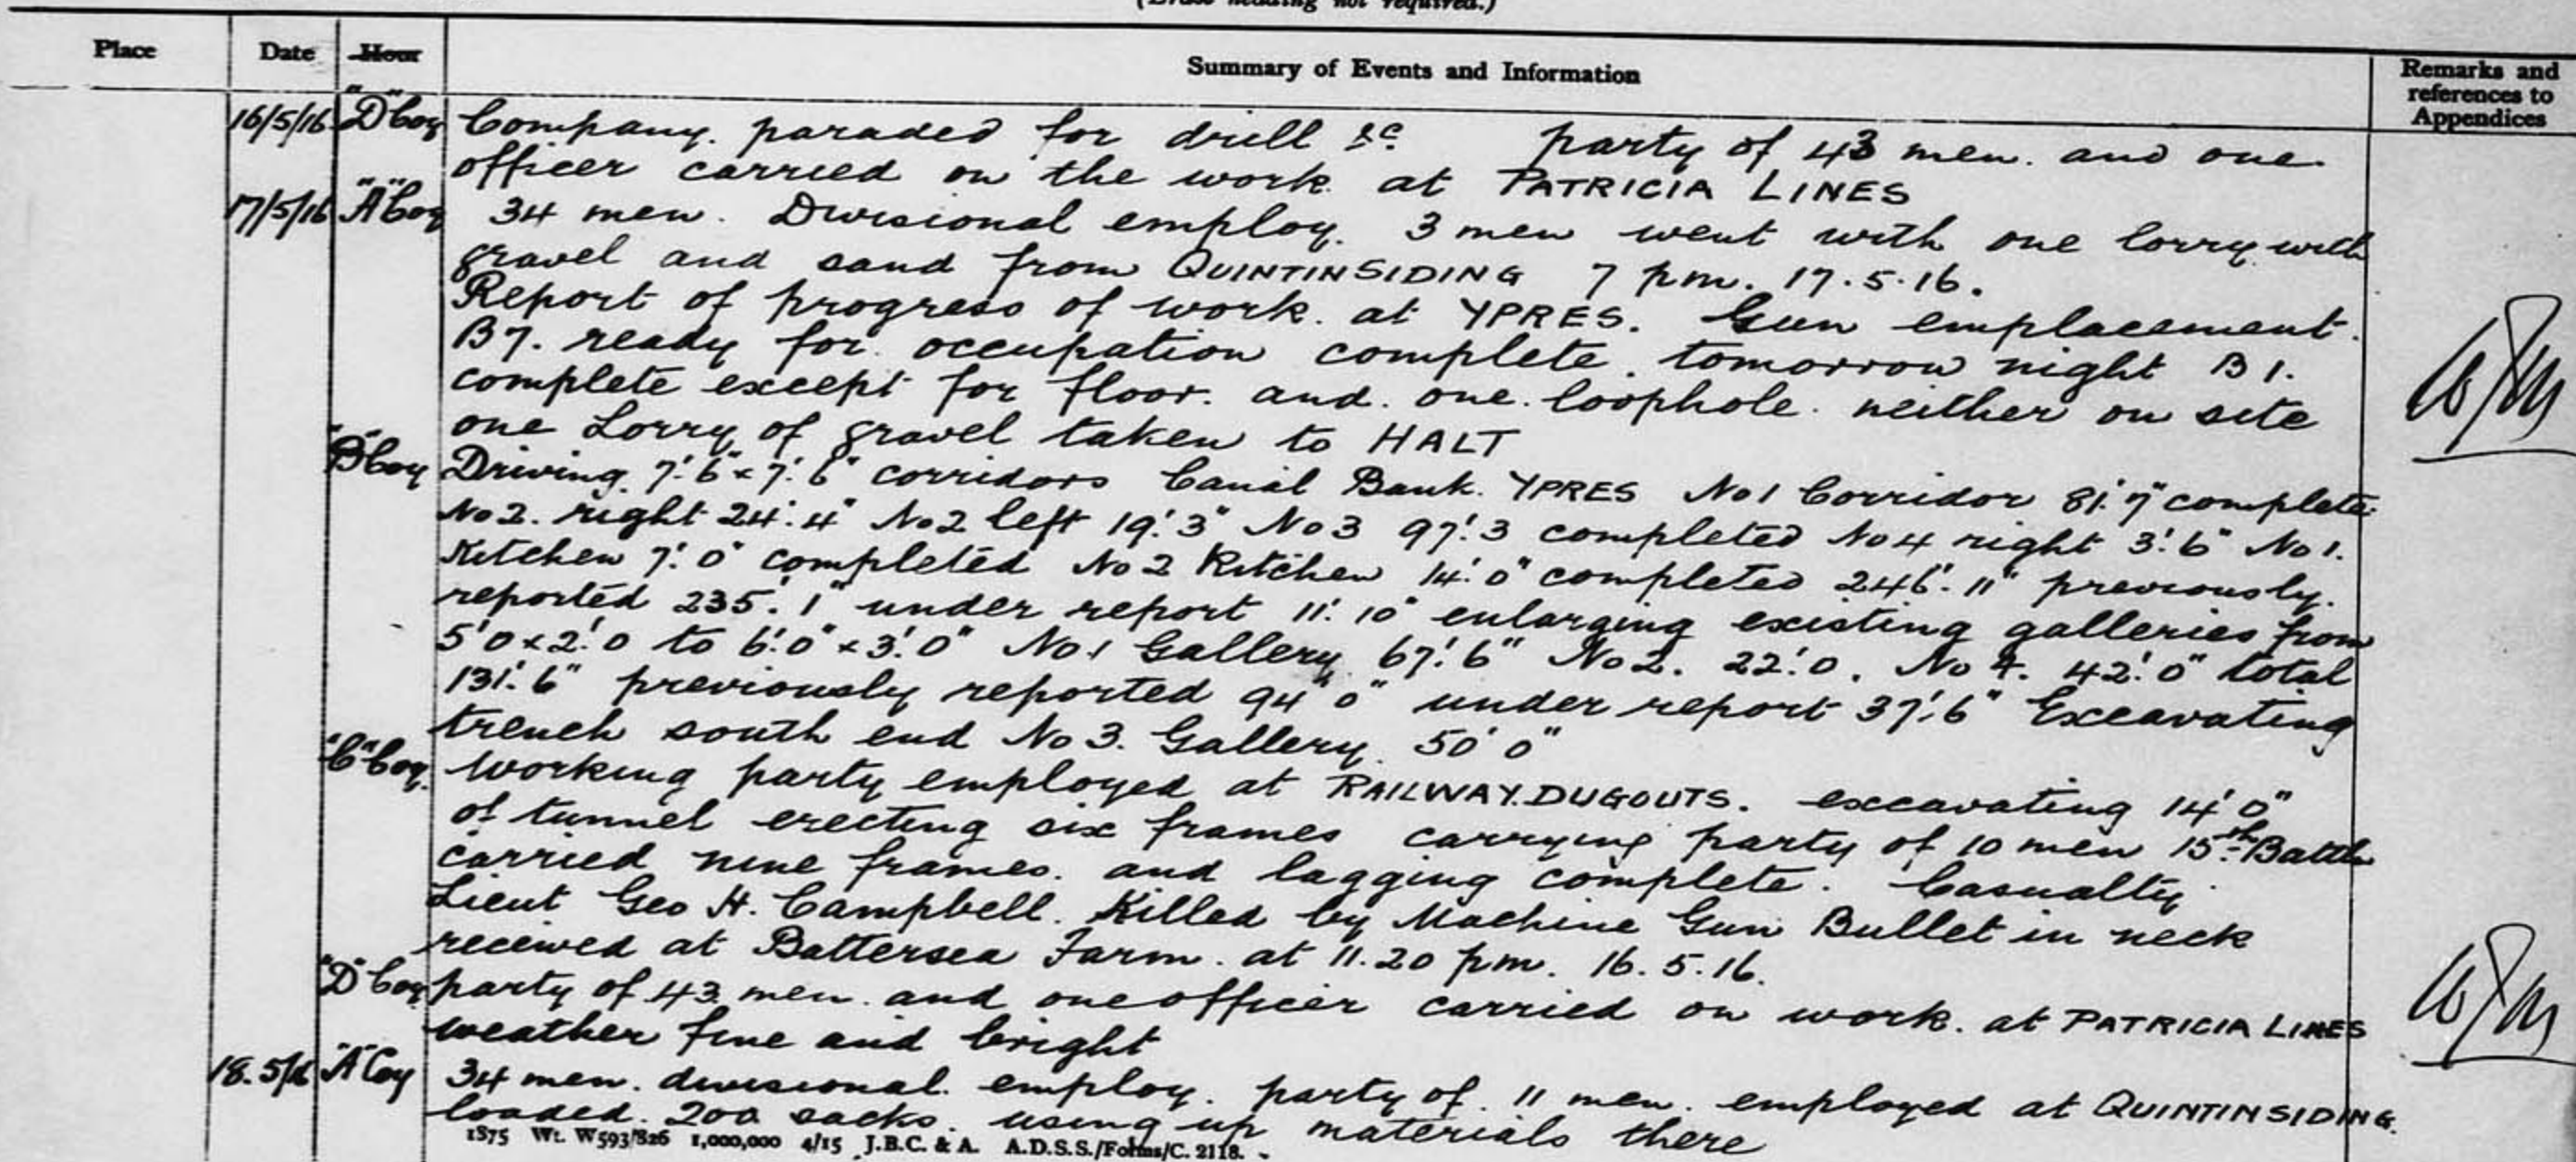 (Erase heading not required.)
Place Date Hour Summary of Events and Information Remarks and references to Appendices
16/5/16 "D" Coy Company. paraded for drill &c party of 43 men. and one
officer carried on the work at PATRICIA LINES
17/5/16 "A" Coy 34 men. Divisional employ. 3 men went with one lorry with
gravel and sand from QUINTIN SIDING 7 pm. 17.5.16.
Report of progress of work. at YPRES. Gun emplacement.
B7. ready for occupation complete. tomorrow night B1.
complete except for floor. and. one. loophole. neither on site
one Lorry of gravel taken to HALT
"B" Coy Driving 7'.6" x 7'.6" corridors Canal Bank. YPRES No 1 Corridor 81'.7" complete
No 2. right 24'.4" No 2 left 19'.3" No 3 97'.3 completed No 4 right 3'.6" No 1.
Kitchen 7'.0" completed No 2 Kitchen 14'.0" completed 246'.11" previously.
reported 235'.1" under report 11'.10" enlarging existing galleries from
5'0 x 2'.0 to 6'.0" x 3'.0" No 1 Gallery 67'.6" No 2. 22'.0. No 4. 42'.0" total
131'.6" previously reported 94"0" under report 37'.6" Excavating
trench south end No 3. Gallery. 50'0"
"C" Coy. Working party employed at RAILWAY.DUGOUTS. excavating 14'0"
of tunnel erecting six frames carrying party of 10 men 15th Battln
carried nine frames. and lagging complete. Casualty
Lieut Geo H. Campbell. Killed by Machine Gun Bullet in neck
received at Battersea Farm. at 11.20 pm. 16.5.16.
"D" Coy party of 43 men. and one officer carried on work. at PATRICIA LINES
weather fine and bright
18.5/16 "A" Coy 34 men. divisional. employ. party of. 11 men. employed at QUINTIN SIDING.
loaded. 200 sacks. using up materials there
1875 Wt. W593/826 1,000,000 4/15 J.B.C. & A. A.D.S.S./Forms/C. 2118.